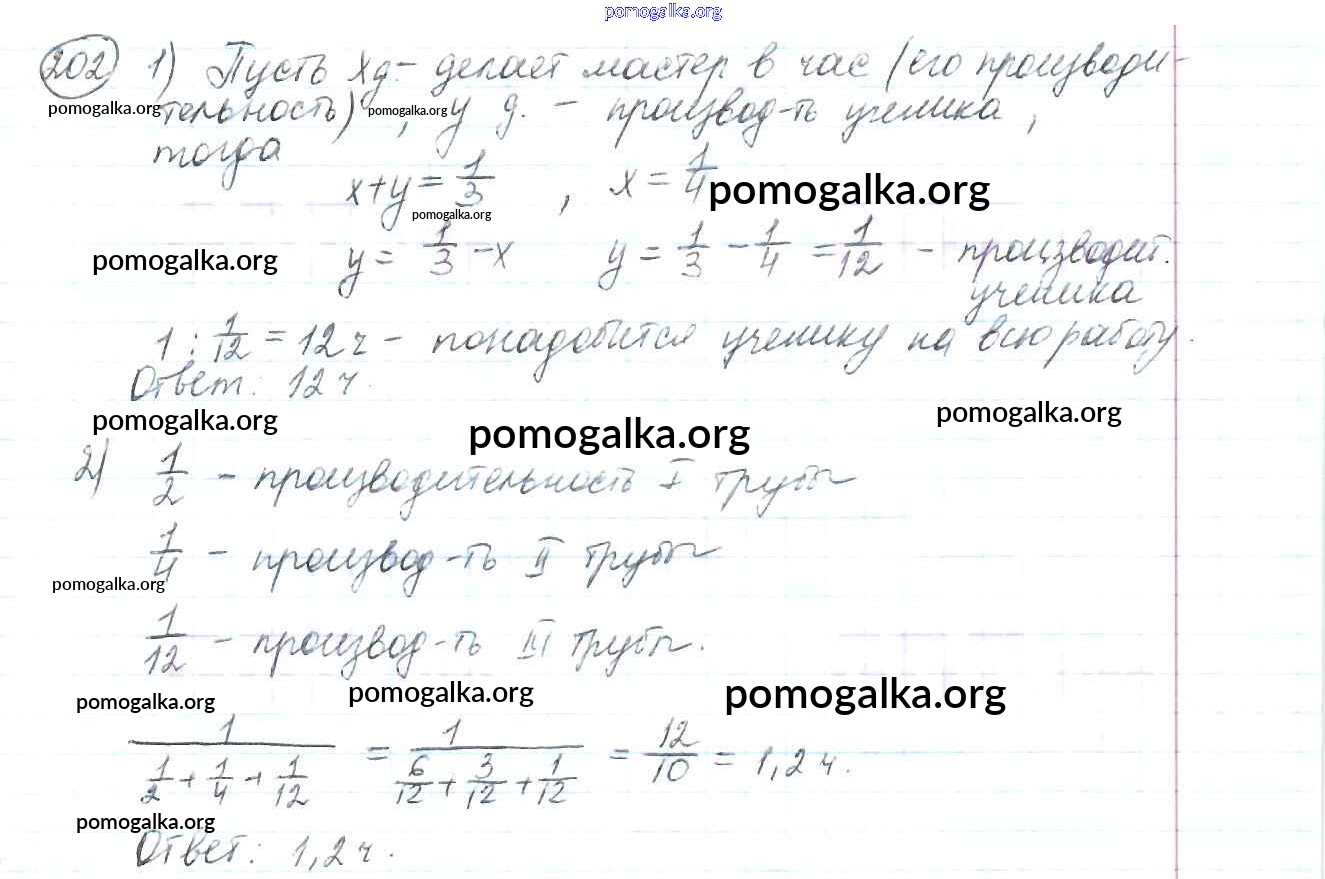 pomogalka.org
202 1) Пусть x д. – делает мастер в час (его производи-
pomogalka.org тельность) pomogalka.org , y д. – производ-ть ученика,
тогда
x+y = 1/3 , x = 1/4 pomogalka.org
pomogalka.org
pomogalka.org y = 1/3 – x y = 1/3 – 1/4 = 1/12 – производит.
ученика
1 : 1/12 = 12 ч – понадобится ученику на всю работу.
Ответ: 12 ч.
pomogalka.org pomogalka.org pomogalka.org
2) 1/2 – производительность I трубы
1/4 – производ-ть II трубы
pomogalka.org
1/12 – производ-ть III трубы.
pomogalka.org pomogalka.org pomogalka.org
1/(1/2 + 1/4 + 1/12) = 1/(6/12 + 3/12 + 1/12) = 12/10 = 1,2 ч.
pomogalka.org
Ответ: 1,2 ч.